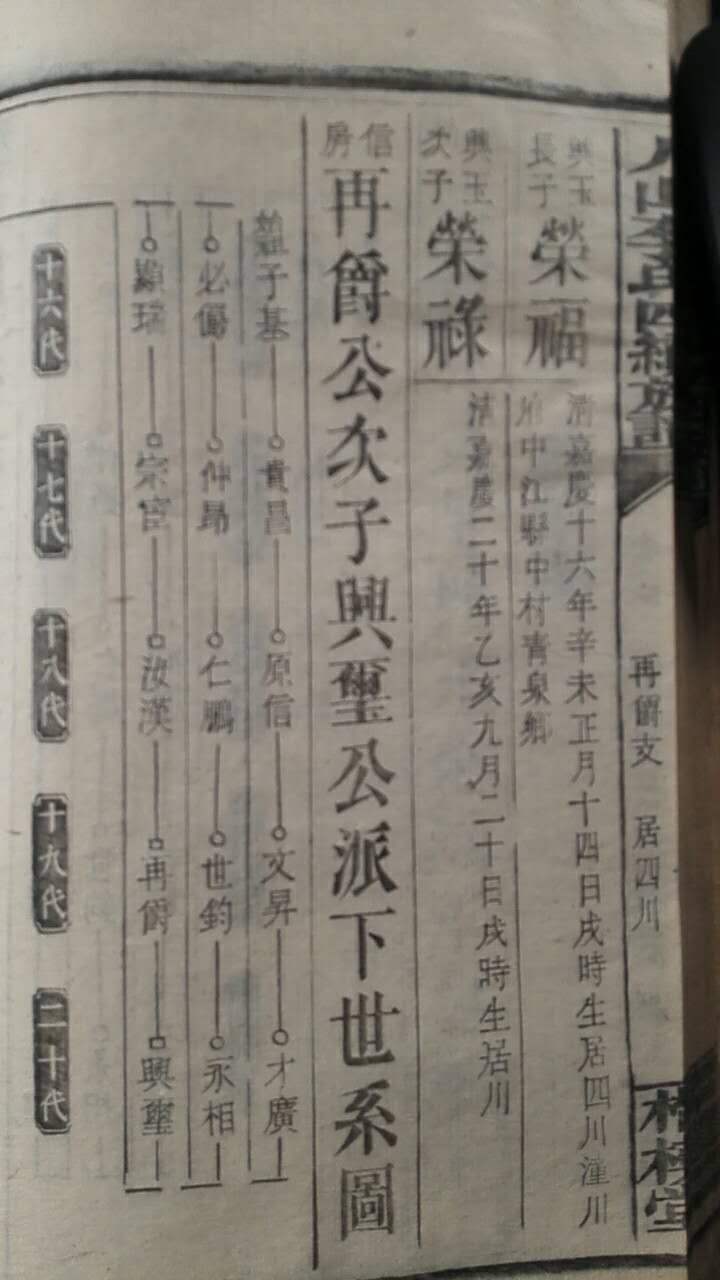 四編族譜
再爵支 居四川
興玉長子 榮福
清嘉慶十六年辛未正月十四日戌時生居四川潼川
府中江縣中村青泉鄉
興玉次子 榮祿
清嘉慶二十年乙亥九月二十日戌時生居川
信房 再爵公次子興璽公派下世系圖
子基 貴昌 原信 文昇 才廣
必 仲昂 仁鵬 世鈞 永相
顯瑞 宗官 汝漢 再爵 興璽
十六代 十七代 十八代 十九代 二十代